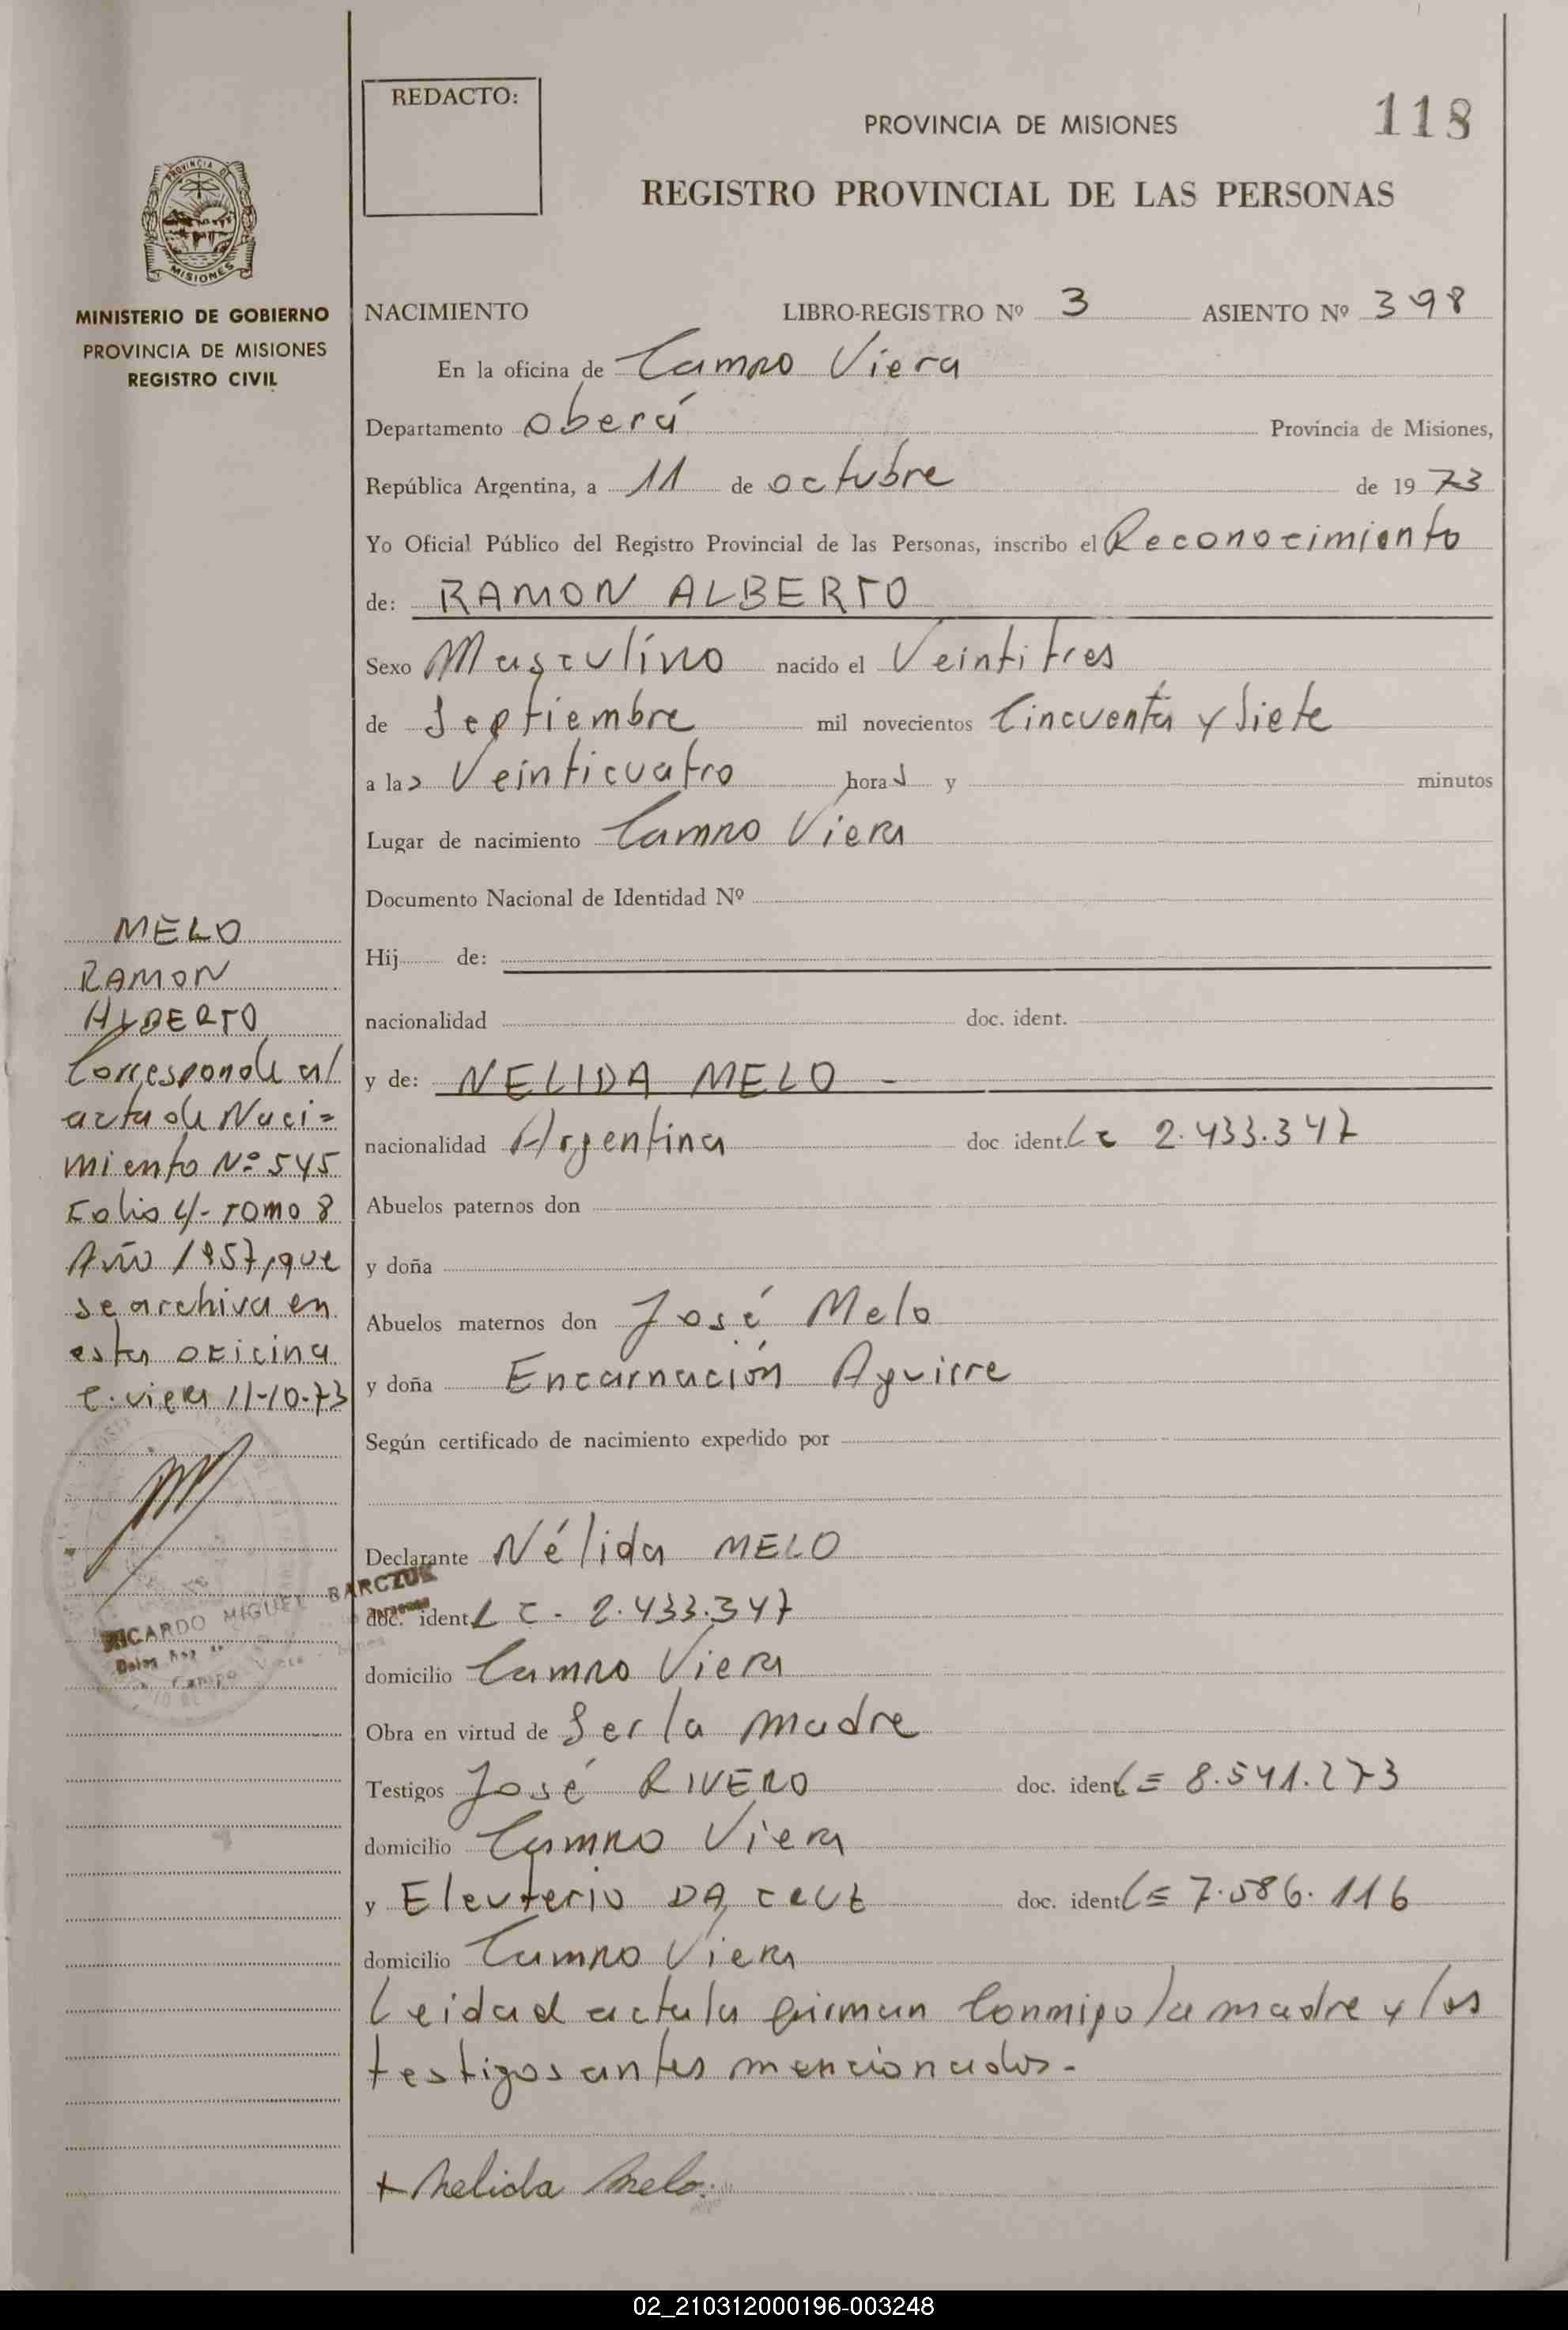 REDACTO:
PROVINCIA DE MISIONES
118
REGISTRO PROVINCIAL DE LAS PERSONAS
PROVINCIA DE
MISIONES
MINISTERIO DE GOBIERNO
PROVINCIA DE MISIONES
REGISTRO CIVIL
NACIMIENTO LIBRO-REGISTRO Nº 3 ASIENTO Nº 398
En la oficina de Campo Viera
Departamento Oberá Provincia de Misiones,
República Argentina, a 11 de octubre de 1973
Yo Oficial Público del Registro Provincial de las Personas, inscribo el Reconocimiento
de: RAMON ALBERTO
Sexo Masculino nacido el Veintitres
de Septiembre mil novecientos Cincuenta y Siete
a las Veinticuatro horas y minutos
Lugar de nacimiento Campo Viera
Documento Nacional de Identidad Nº
Hij de:
nacionalidad doc. ident.
y de: NELIDA MELO -
nacionalidad Argentina doc ident. LC 2.433.347
Abuelos paternos don
y doña
Abuelos maternos don José Melo
y doña Encarnación Aguirre
Según certificado de nacimiento expedido por
Declarante Nélida MELO
doc. ident LC - 2.433.347
domicilio Campo Viera
Obra en virtud de Ser la madre
Testigos José RIVERO doc. ident LE 8.541.273
domicilio Campo Viera
y Eleuterio DA CRUZ doc. ident LE 7.586.116
domicilio Campo Viera
Leida el acta la firman Conmigo la madre y los
testigos antes mencionados.-
+ Nelida Melo.
MELO
RAMON
ALBERTO
Corresponde al
acta de Naci=
miento Nº 545
Folio 4/- TOMO 8
Año 1957, que
se archiva en
esta oficina
C. Viera 11-10-73
RICARDO MIGUEL BARCZUK
02_210312000196-003248